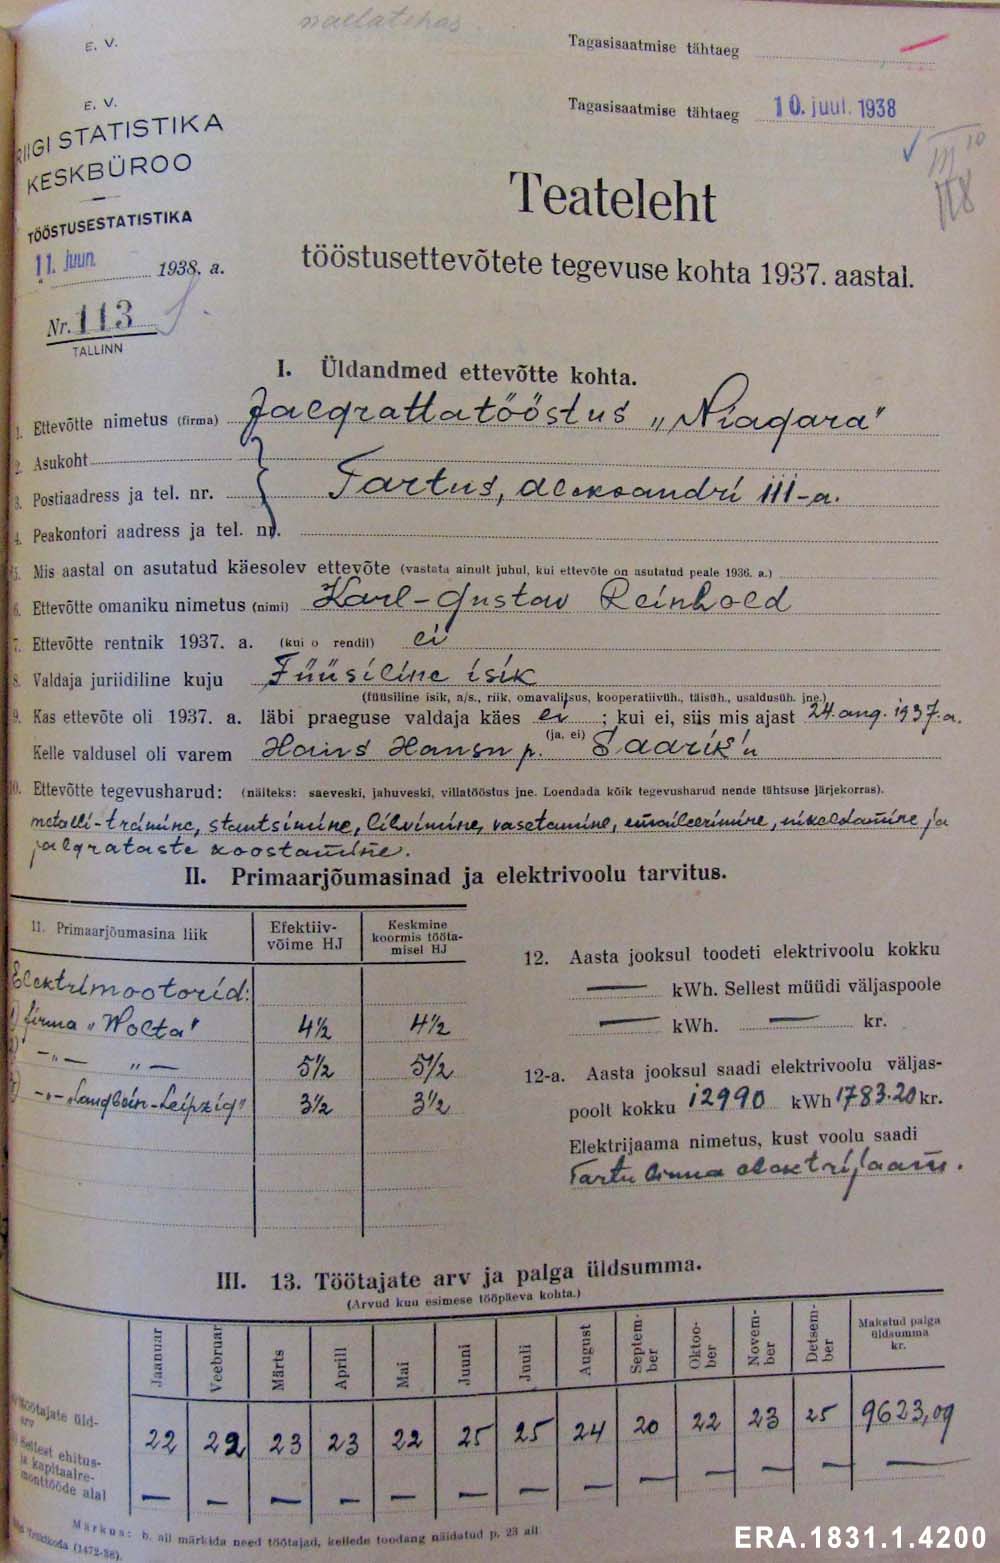 naelatehas.
E. V.
Tagasisaatmise tähtaeg
E. V.
RIIGI STATISTIKA
KESKBÜROO
TÖÖSTUSESTATISTIKA
11. juun. 1938. a.
Nr. 113
TALLINN
Tagasisaatmise tähtaeg 10. juul. 1938
III 10
118
Teateleht
tööstusettevõtete tegevuse kohta 1937. aastal.
I. Üldandmed ettevõtte kohta.
1. Ettevõtte nimetus (firma) Jalgrattatööstus „Niagara"
2. Asukoht
3. Postiaadress ja tel. nr. Tartus, Aleksandri 111-a.
4. Peakontori aadress ja tel. nr.
5. Mis aastal on asutatud käesolev ettevõte (vastata ainult juhul, kui ettevõte on asutatud peale 1936. a.)
6. Ettevõtte omaniku nimetus (nimi) Karl-Gustav Reinhold
7. Ettevõtte rentnik 1937. a. (kui o rendil) ei
8. Valdaja juriidiline kuju Füüsiline isik
(füüsiline isik, a/s., riik, omavalitsus, kooperatiivüh., täisüh., usaldusüh. jne.)
9. Kas ettevõte oli 1937. a. läbi praeguse valdaja käes ei ; kui ei, siis mis ajast 24. aug. 1937. a.
(ja, ei)
Kelle valdusel oli varem Hans Hansu p. Saarik'u
10. Ettevõtte tegevusharud: (näiteks: saeveski, jahuveski, villatööstus jne. Loendada kõik tegevusharud nende tähtsuse järjekorras).
metalli-treimine, stantsimine, lihvimine, vasetamine, emaileerimine, nikeldamine ja
jalgrataste koostamine.
II. Primaarjõumasinad ja elektrivoolu tarvitus.
11. Primaarjõumasina liik
Efektiiv-
võime HJ
Keskmine
koormis tööta-
misel HJ
Elektrimootorid:
1) firma „Wolta" 4½ 4½
2) -"- "- 5½ 5½
3) -"- „Langbein-Leipzig" 3½ 3½
12. Aasta jooksul toodeti elektrivoolu kokku
— kWh. Sellest müüdi väljaspoole
— kWh. — kr.
12-a. Aasta jooksul saadi elektrivoolu väljas-
poolt kokku 12990 kWh 1783.20 kr.
Elektrijaama nimetus, kust voolu saadi
Tartu linna elektrijaam.
III. 13. Töötajate arv ja palga üldsumma.
(Arvud kuu esimese tööpäeva kohta.)
Jaanuar Veebruar Märts Aprill Mai Juuni Juuli August Septem-ber Oktoo-ber Novem-ber Detsem-ber Makstud palga üldsumma kr.
töötajate üld-
arv 22 22 23 23 22 25 25 24 20 22 23 25 9623,09
Sellest ehitus-
ja kapitaalre-
monttööde alal — — — — — — — — — — — — —
Märkus: b. all märkida need töötajad, kellede toodang näidatud p. 23 all
Trükikoda (1472-38).
ERA.1831.1.4200